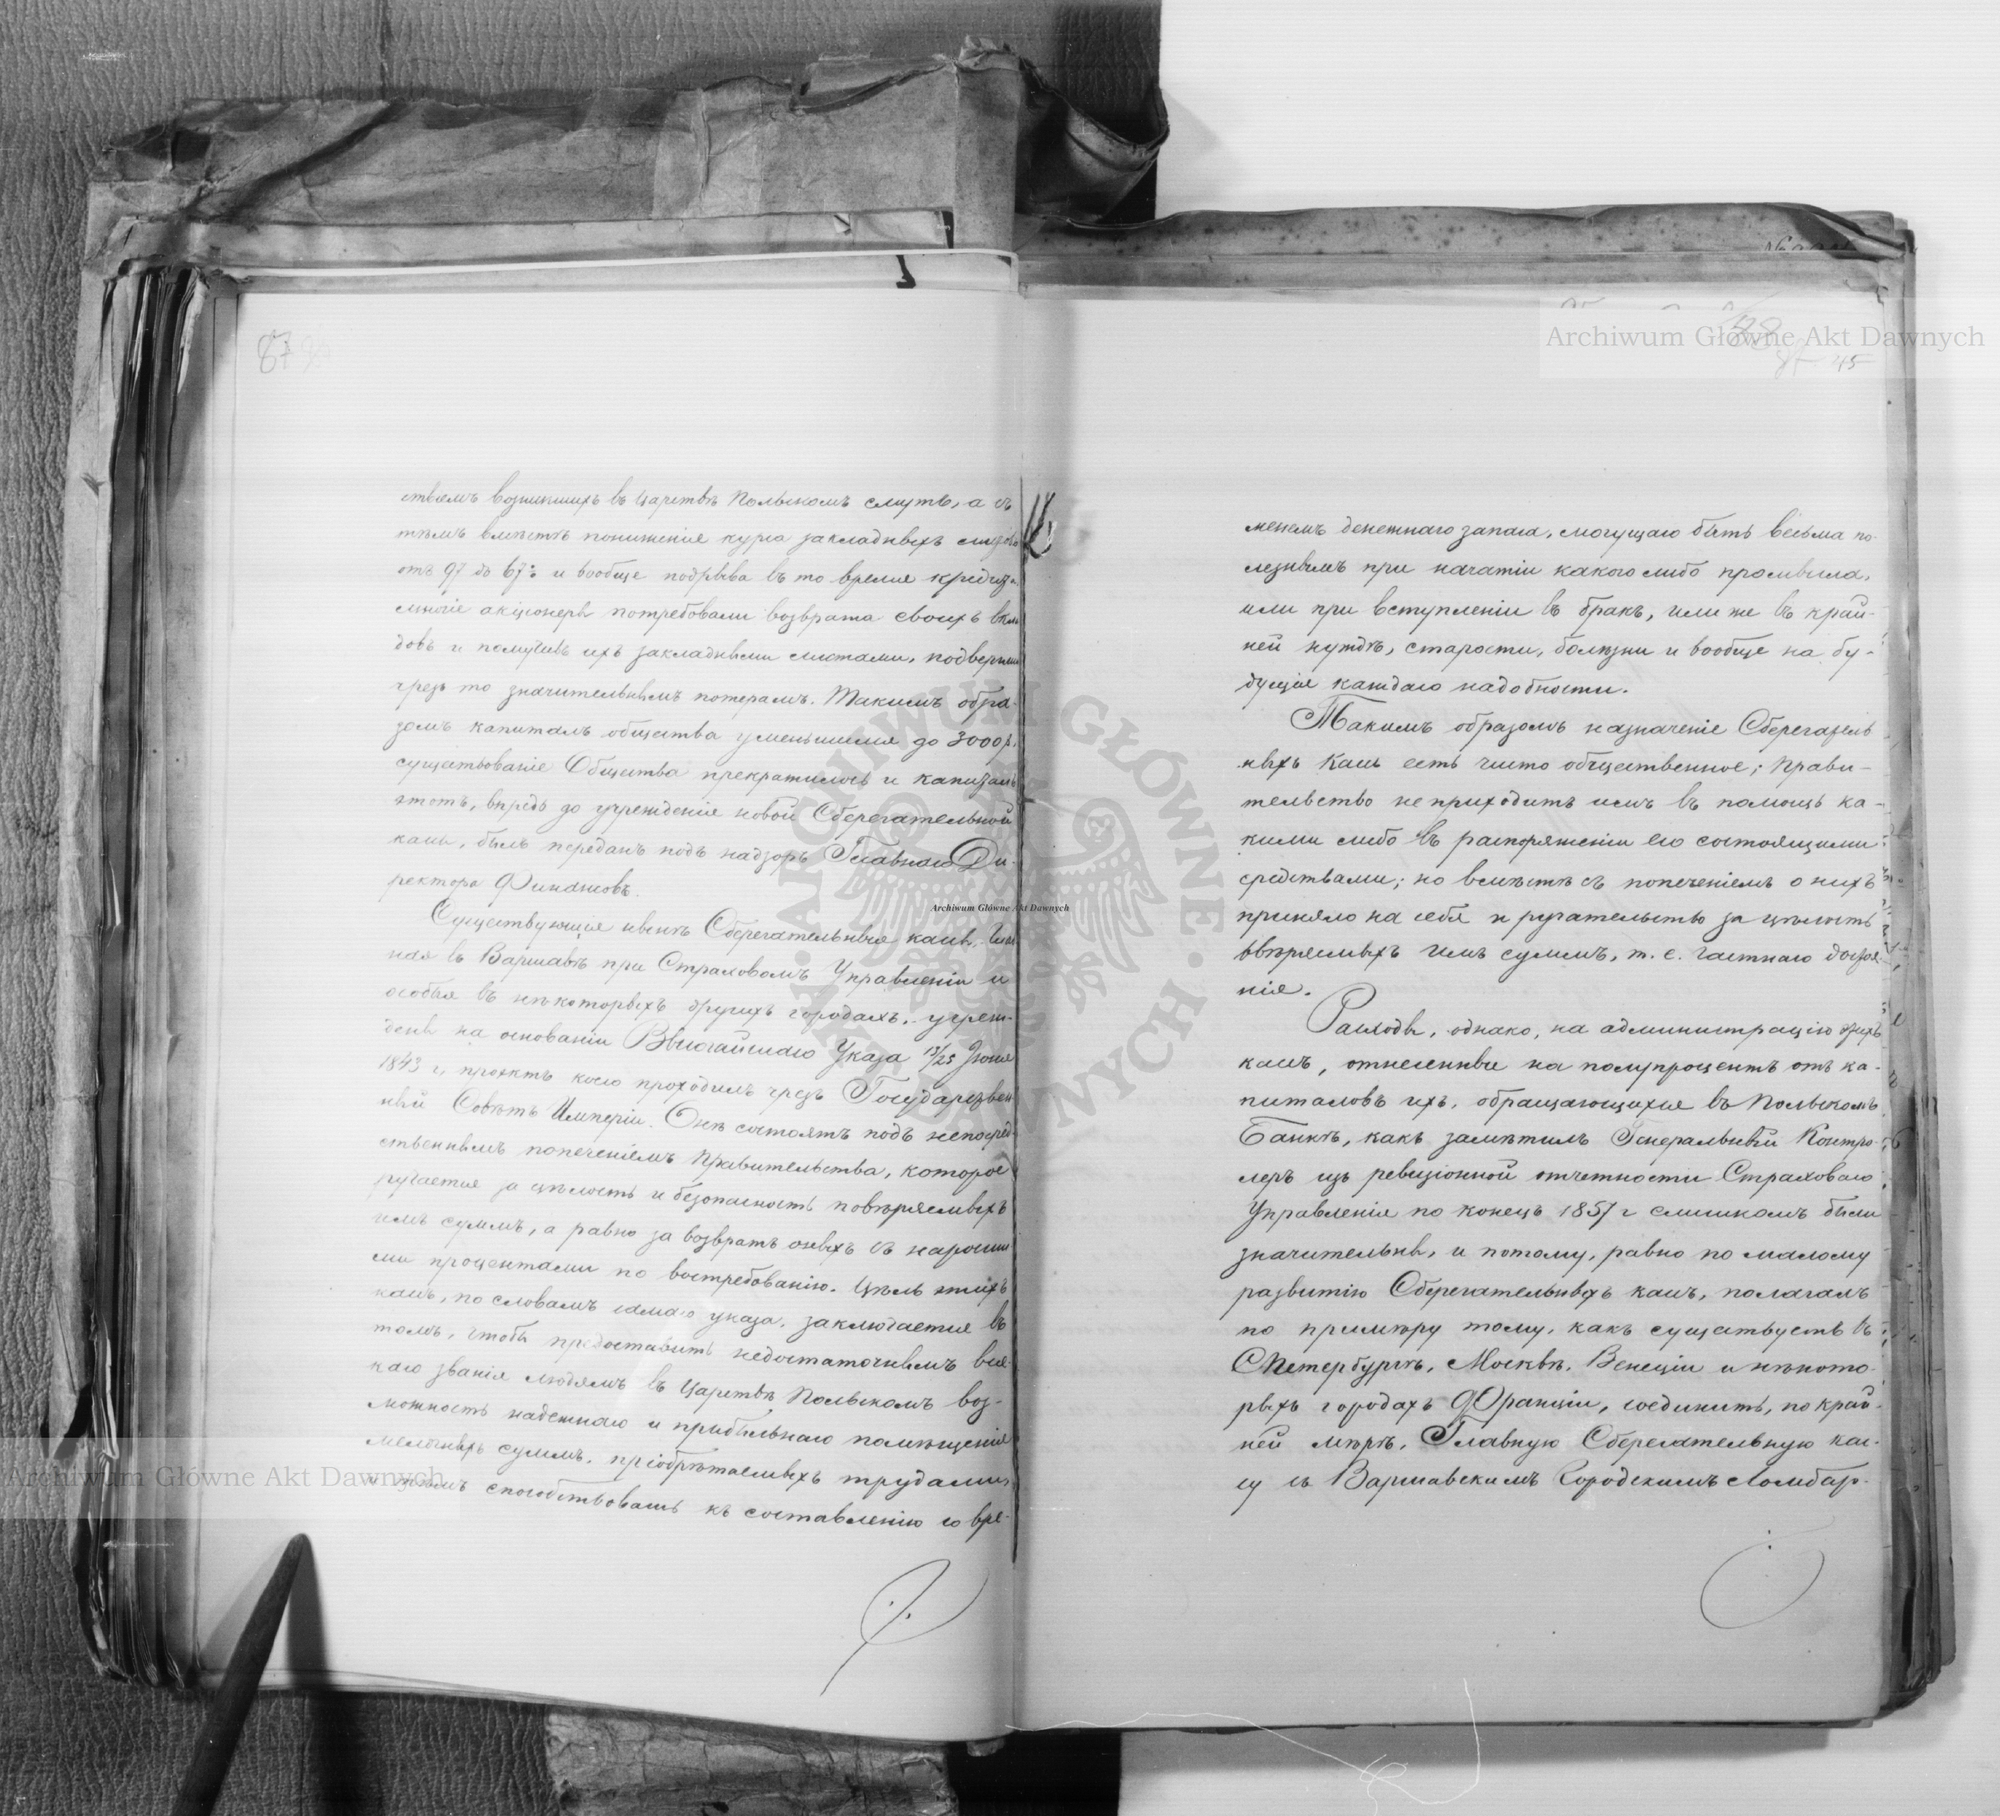 87
ствіемъ возникшихъ въ Царствѣ Польскомъ смутъ, а съ
тѣмъ вмѣстѣ пониженія курса закладныхъ листовъ
отъ 97 до 67% и вообще подрыва въ то время кредита,
многіе акціонеры потребовали возврата своихъ вкла
довъ и получивъ ихъ закладными листами, подверглись
чрезъ то значительнымъ потерямъ. Такимъ обра-
зомъ капиталъ общества уменьшился до 3000 р.
существованіе Общества прекратилось и капиталъ
этотъ, впредь до учрежденія новой Сберегательной
кассы, былъ переданъ подъ надзоръ Главнаго Ди-
ректора Финансовъ.
Существующія нынѣ Сберегательныя кассы, Глав
ная въ Варшавѣ при Страховомъ Управленіи и
особыя въ нѣкоторыхъ другихъ городахъ, учреж-
дены на основаніи Высочайшаго Указа 13/25 Іюня
1843 г, проэктъ коего проходилъ чрезъ Государствен
ный Совѣтъ Имперіи. Онѣ состоятъ подъ непосред-
ственнымъ попеченіемъ Правительства, которое
ручается за цѣлость и безопасность повѣряемыхъ
имъ суммъ, а равно за возвратъ оныхъ съ наросши
ми процентами по востребованію. Цѣль этихъ
кассъ, по словамъ самаго указа, заключается въ
томъ, чтобы предоставить недостаточнымъ вся-
каго званія людямъ въ Царствѣ Польскомъ воз-
можность надежнаго и прибыльнаго помѣщенія
мелочныхъ суммъ, пріобрѣтаемыхъ трудами,
и тѣмъ способствовать къ составленію со вре-
88
45
менемъ денежнаго запаса, могущаго быть весьма по-
лезнымъ при начатіи какого либо промысла,
или при вступленіи въ бракъ, или же въ край-
ней нуждѣ, старости, болѣзни и вообще на бу-
дущія каждаго надобности.
Такимъ образомъ назначеніе Сберегатель
ныхъ Кассъ есть чисто общественное; Прави-
тельство не приходитъ имъ въ помощь ка-
кими либо въ распоряженіи его состоящими
средствами; но вмѣстѣ съ попеченіемъ о нихъ
приняло на себя и ручательство за цѣлость
ввѣряемыхъ имъ суммъ, т. е. частнаго достоя-
нія.
Расходы, однако, на администрацію этихъ
кассъ, отнесенные на полупроцентъ отъ ка-
питаловъ ихъ, обращающихся въ Польскомъ
Банкѣ, какъ замѣтилъ Генеральный Контро-
леръ изъ ревизіонной отчетности Страховаго
Управленія по конецъ 1857 г слишкомъ были
значительны, и потому, равно по малому
развитію Сберегательныхъ кассъ, полагалъ
по примѣру тому, какъ существуетъ въ
СПетербургѣ, Москвѣ, Венеціи и нѣкото-
рыхъ городахъ Франціи, соединить, по край-
ней мѣрѣ, Главную Сберегательную кас-
су съ Варшавскимъ Городскимъ Ломбар-
Archiwum Główne Akt Dawnych
Archiwum Główne Akt Dawnych
Archiwum Główne Akt Dawnych
ARCHIWUM GŁÓWNE AKT DAWNYCH